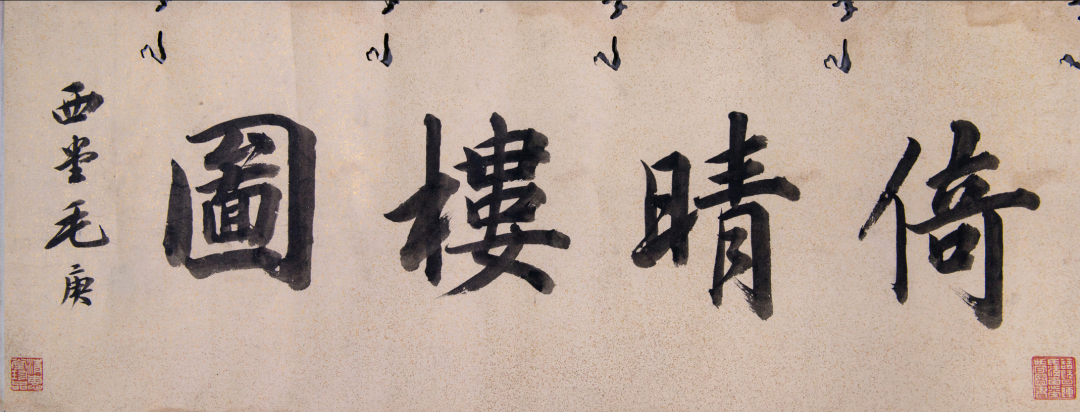 倚晴樓圖
西堂毛庚